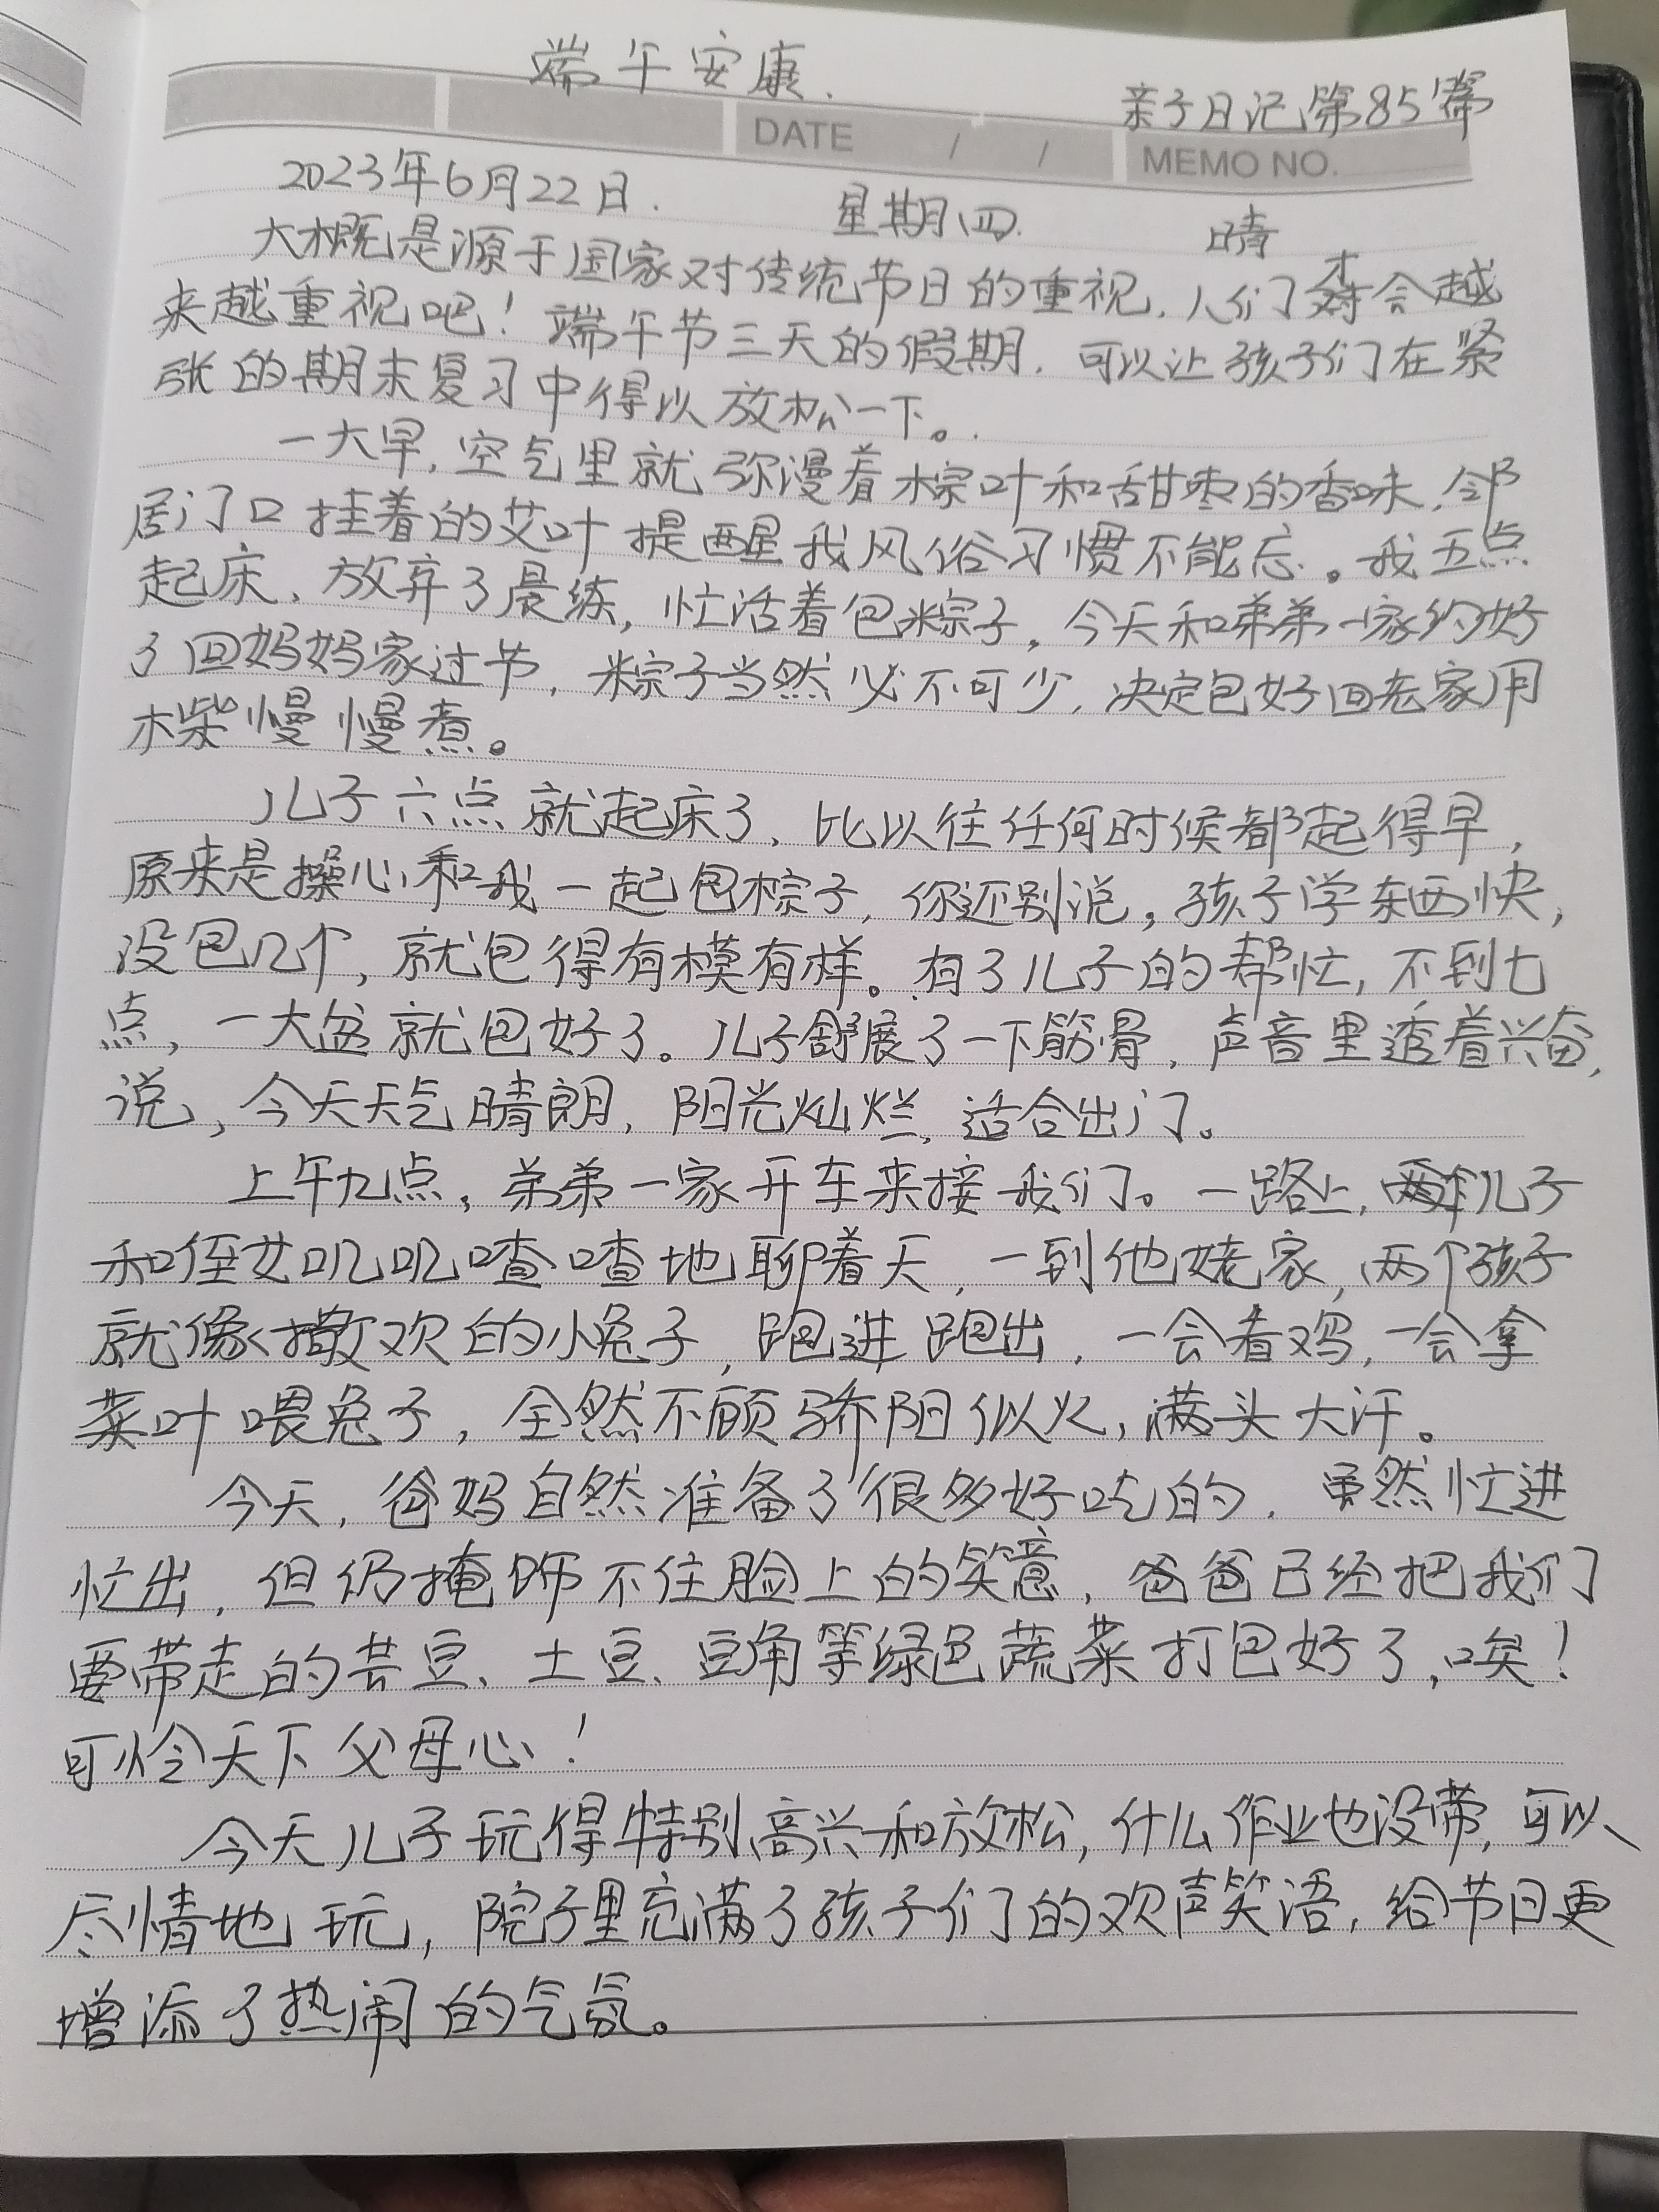 端午安康.
亲子日记第85篇
DATE / / MEMO NO.
2023年6月22日. 星期四. 晴
大概是源于国家对传统节日的重视,人们才会越
来越重视吧!端午节三天的假期,可以让孩子们在紧
张的期末复习中得以放松一下。
一大早,空气里就弥漫着棕叶和甜枣的香味,邻
居门口挂着的艾叶提醒我风俗习惯不能忘。我五点
起床,放弃了晨练,忙活着包粽子。今天和弟弟一家约好
了回妈妈家过节,粽子当然必不可少,决定包好回老家用
木柴慢慢煮。
儿子六点就起床了,比以往任何时候都起得早,
原来是操心和我一起包棕子,你还别说,孩子学东西快,
没包几个,就包得有模有样。有了儿子的帮忙,不到七
点,一大盆就包好了。儿子舒展了一下筋骨,声音里透着兴奋,
说,今天天气晴朗,阳光灿烂,适合出门。
上午九点,弟弟一家开车来接我们。一路上,儿子
和侄女叽叽喳喳地聊着天,一到他姥家,两个孩子
就像撒欢的小兔子,跑进跑出,一会看鸡,一会拿
菜叶喂兔子,全然不顾骄阳似火,满头大汗。
今天,爸妈自然准备了很多好吃的,虽然忙进
忙出,但仍掩饰不住脸上的笑意,爸爸已经把我们
要带走的芸豆、土豆、豆角等绿色蔬菜打包好了,唉!
可怜天下父母心!
今天儿子玩得特别高兴和放松,什么作业也没带,可以
尽情地玩,院子里充满了孩子们的欢声笑语,给节日更
增添了热闹的气氛。